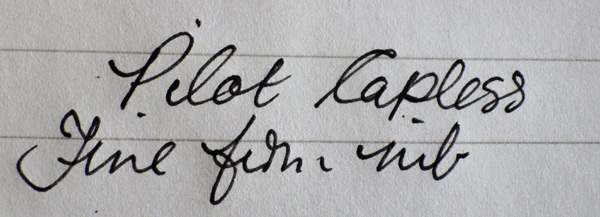 Pilot Capless
Fine firm nib